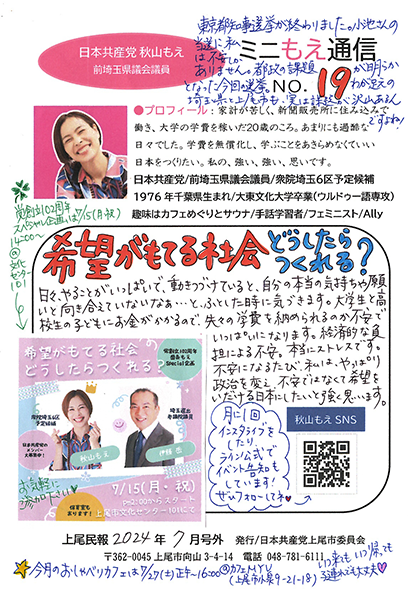 東京都知事選挙が終わりました。小池さんの
当選に私
は不安しか
ありません。都政の課題
が明らか
となった今回の選挙。
わが足元の
埼玉県と上尾市も、実は課題が沢山あるん
ですよね!
日本共産党 秋山もえ
前埼玉県議会議員
ミニもえ通信
NO. 19
●プロフィール:家計が苦しく、新聞販売所に住み込みで
働き、大学の学費を稼いだ20歳のころ。あまりにも過酷な
日々でした。学費を無償化し、学ぶことをあきらめなくていい
日本をつくりたい。私の、強い、強い、思いです。
日本共産党/前埼玉県議会議員/衆院埼玉6区予定候補
1976年千葉県生まれ/大東文化大学卒業(ウルドゥー語専攻)
趣味はカフェめぐりとサウナ/手話学習者/フェミニスト/Ally
党創立102周年
スペシャル企画は7/15(月・祝)
14:00〜
@文化
センター
101
希望がもてる社会 どうしたら
つくれる?
日々、やることがいっぱいで、動きつづけていると、自分の本当の気持ちや願
いと向き合えていないなぁ…と、ふとした時に気づきます。大学生と高
校生の子どもにお金がかかるので、先々の学費を納められるのか不安で
いっぱいになります。経済的な負
担による不安。本当にストレスです。
不安になるたび、私は、やっぱり
政治を変え、不安ではなくて希望を
いだける日本にしたいと強く思います。
希望がもてる社会
どうしたらつくれる?
党創立102周年
秋山もえ
Special企画
衆院埼玉6区
予定候補
埼玉選出
参議院議員
日本共産党の
メンバー
大募集中!
秋山もえ
伊藤 岳
7/15(月・祝)
pm2:00からスタート
上尾市文化センター101にて
保育室も
あります!
お気軽に
ご参加ください
月に1回
インスタライブを
したり、
ライン公式で
イベント告知も
しています!
ぜひフォローしてネ
秋山もえ SNS
上尾民報 2024年 7月号外 発行/日本共産党上尾市委員会
〒362-0045 上尾市向山3-4-14 電話 048-781-6111
今月のおしゃべりカフェは7/27(土)正午〜16:00@カフェMYU
(上尾市小泉9-21-18)
いつ来ても、いつ帰っても
子連れでも大丈夫